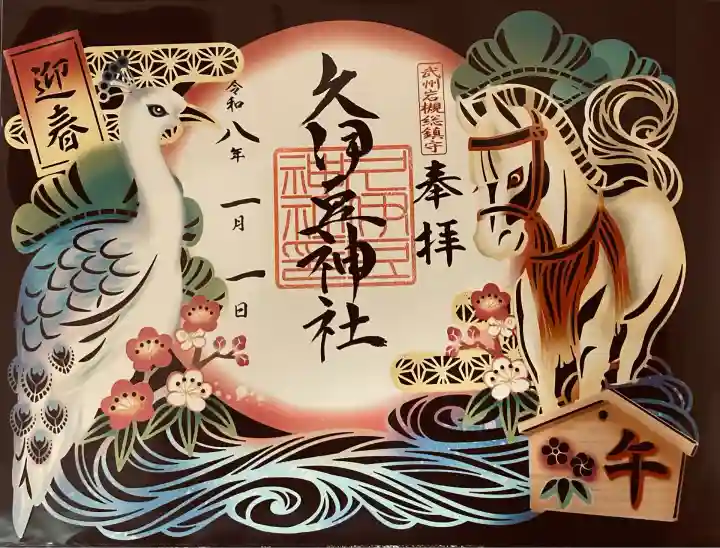 武州岩槻総鎮守
奉拝
久伊豆神社
令和八年 一月 一日
迎春
午